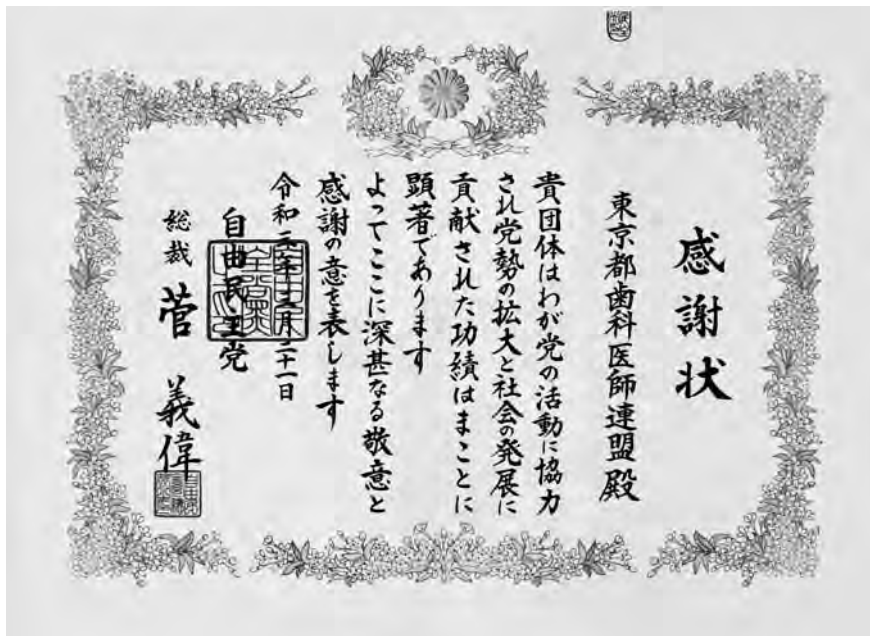 感謝状
東京都歯科医師連盟殿
貴団体はわが党の活動に協力
され党勢の拡大と社会の発展に
貢献された功績はまことに
顕著であります
よってここに深甚なる敬意と
感謝の意を表します
令和三年三月二十一日
自由民主党
総裁 菅 義偉